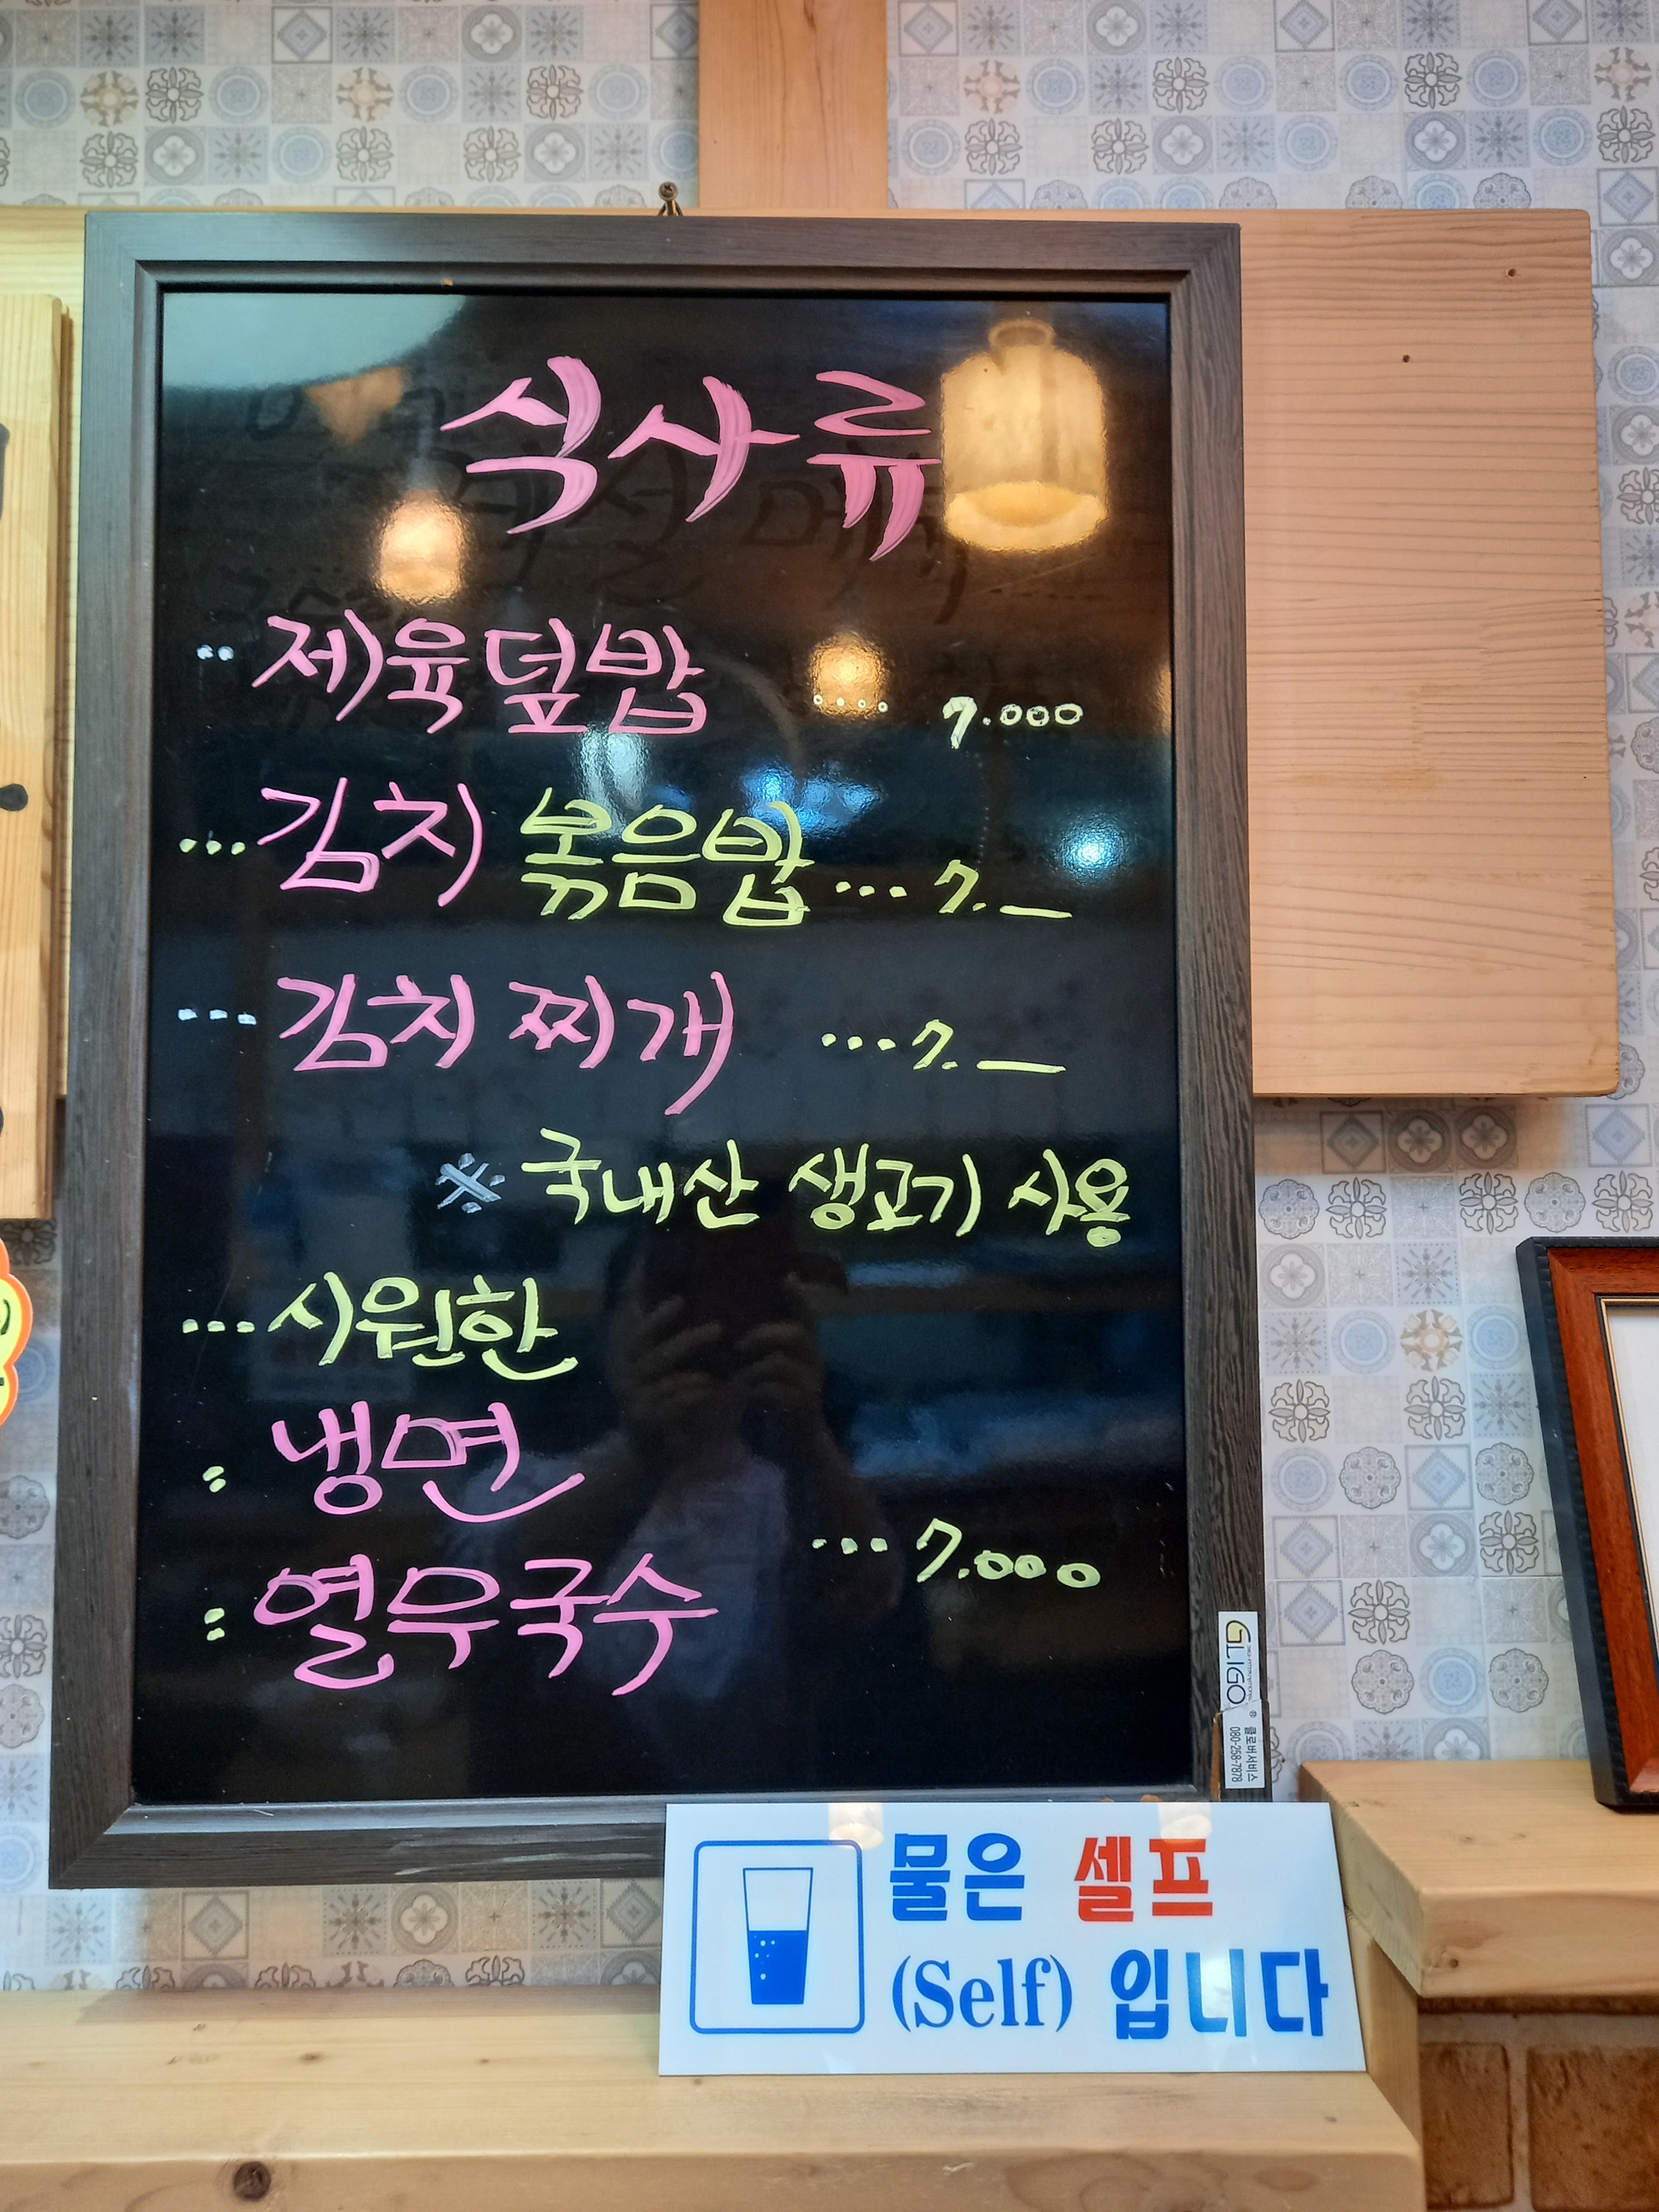 식사류
·· 제육덮밥 .... 7.000
... 김치 볶음밥 ... 7.—
... 김치 찌개 ... 7.—
※ 국내산 생고기 사용
... 시원한
: 냉면
... 7.000
: 열무국수
GLIGO
® 클로버서비스
080-258-7878
물은 셀프
(Self) 입니다